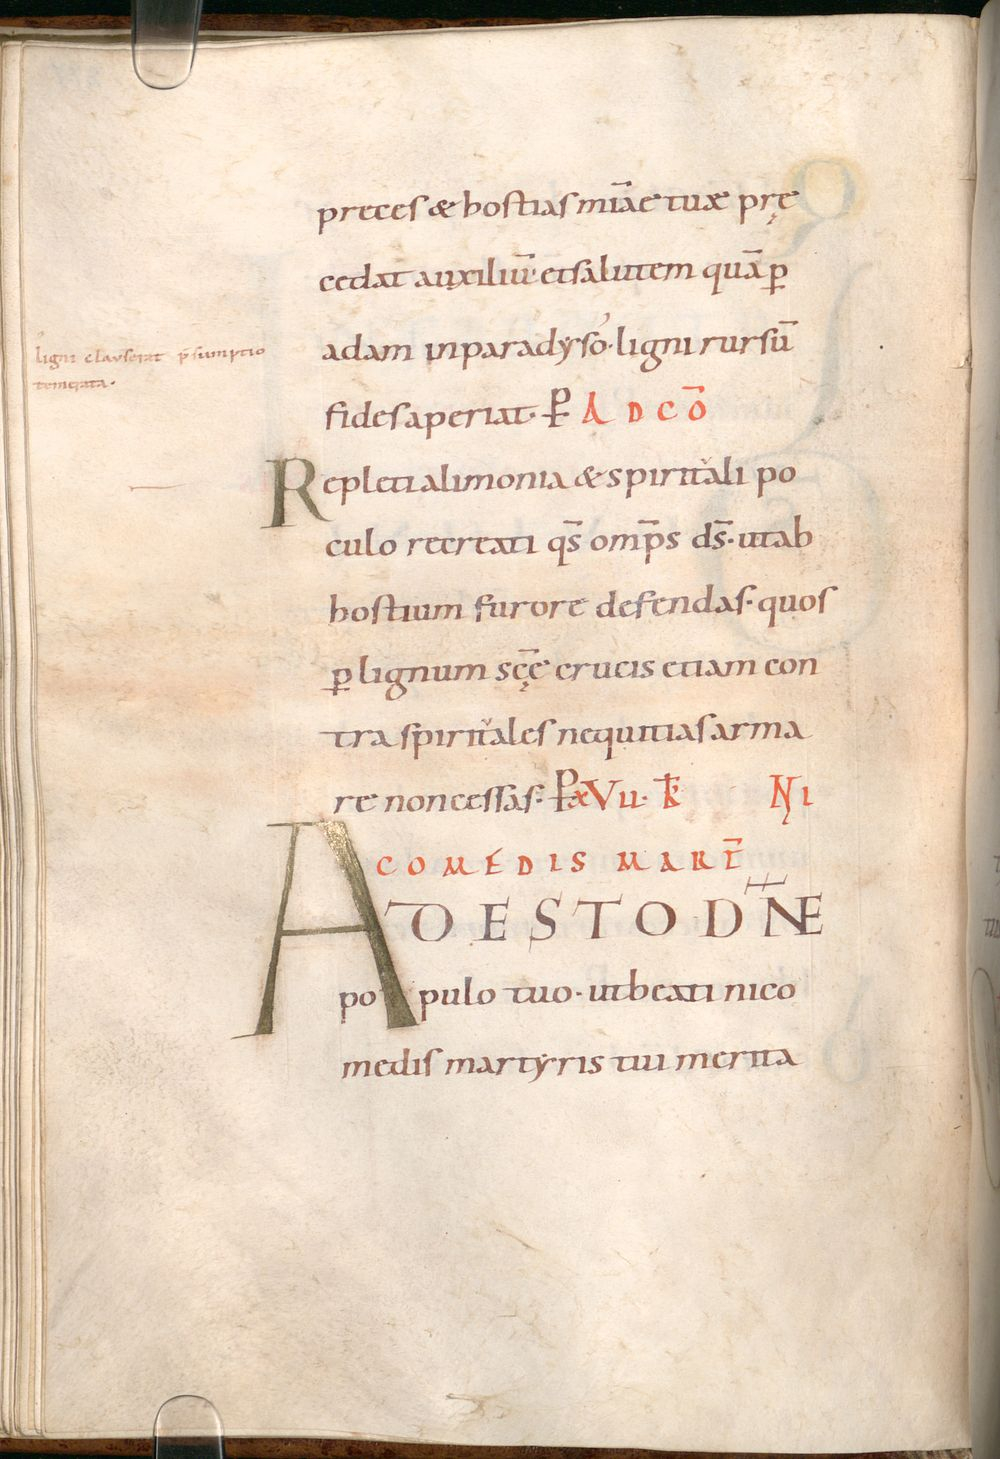 preces & hostias mīae tuae prę
cedat auxiliū et salutem quā ꝑ
adam in paradyso· ligni rursū
ligni clauserat p̄sumptio
temerata·
fides aperiat· ꝑ AD CŌ
Repleti alimonia & spiritali po
culo recreati qs̄ omp̄s ds̄· ut ab
hostium furore defendas· quos
ꝑ lignum sc̄ę crucis etiam con
tra spiritales nequitias arma
re non cessas· ꝑ XVII· k̄ NI
COMEDIS MART̄
ADESTO DN̄E
populo tuo· ut beati nico
medis martyris tui merita